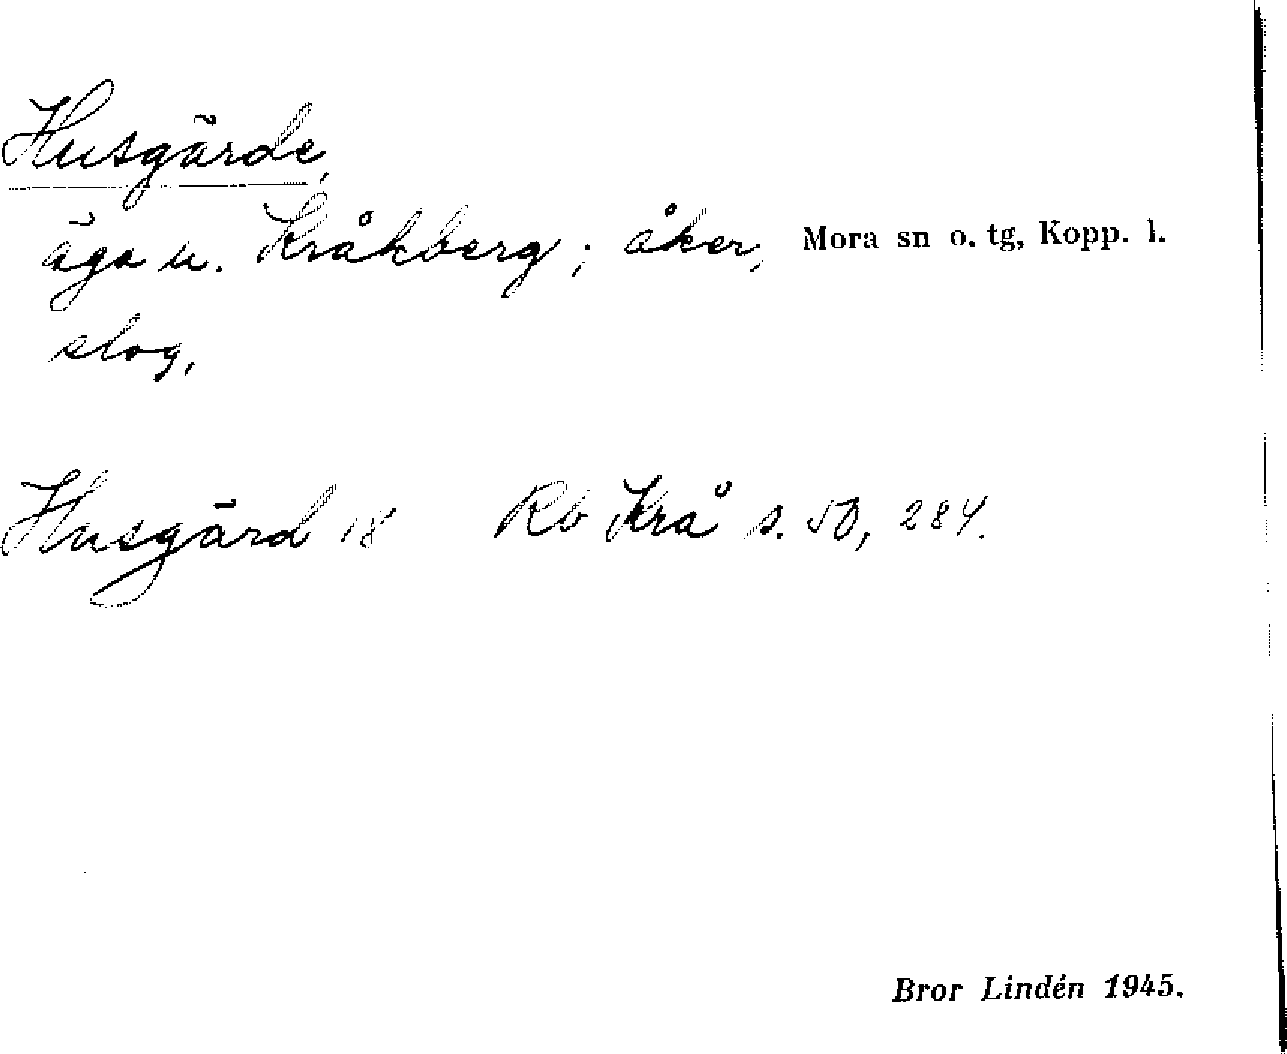 Husgärde,
äga u. Kråkberg; åker, Mora sn o. tg, Kopp. l.
slog.
Husgärd 18 Rb Krå s. 50, 284.
Bror Lindén 1945.